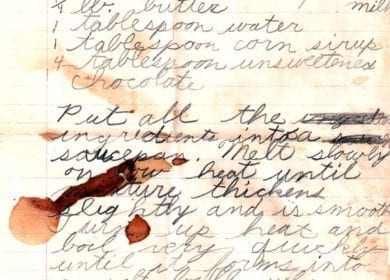 lb. butter milk
1 tablespoon water
1 tablespoon corn sirup
4 tablespoon unsweetened
chocolate
Put all the
ingredients into a
saucepan. Melt slowly
on low heat until
thickens
slightly and is smooth
up heat and
boil very quickly
until it forms into